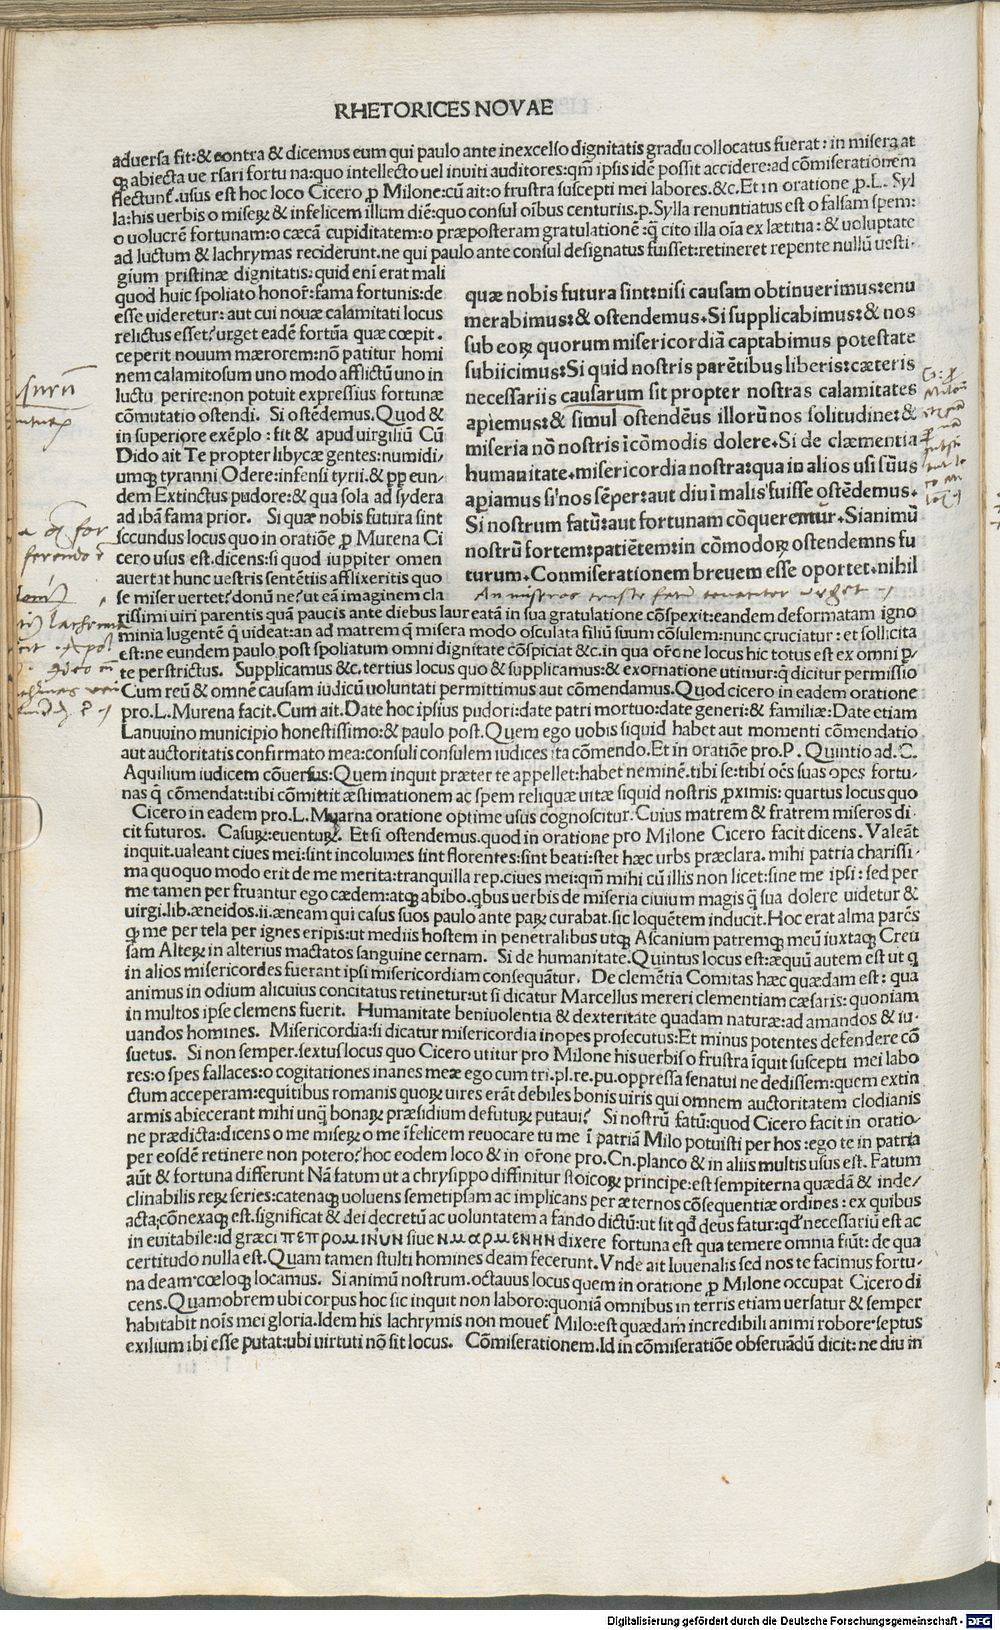 RHETORICES NOVAE
aduersa fit:& contra & dicemus eum qui paulo ante inexcelso dignitatis gradu collocatus fuerat: in misera at
qꝫ abiecta ue rsari fortu na:quo intellecto uel inuiti auditores:qm̄ ipsis idē possit accidere:ad cōmiserationem
flectunt̄. usus est hoc loco Cicero ꝓ Milone:cū ait:o frustra suscepti mei labores.&c.Et in oratione ꝓ.L. Syl
la:his uerbis o miseꝝ & infelicem illum diē:quo consul oībus centuriis.p.Sylla renuntiatus est o falsam spem:
o uolucrē fortunam:o cæcā cupiditatem:o præposteram gratulationē:q̄ cito illa oīa ex lætitia:& uoluptate
ad luctum & lachrymas reciderunt.ne qui paulo ante consul designatus fuisset:retineret repente nullū uesti-
gium pristinæ dignitatis:quid enī erat mali
quod huic spoliato honor̄:fama fortunis:de
esse uideretur: aut cui nouæ calamitati locus
relictus esset? urget eadē fortūa quæ cœpit.
ceperit nouum mærorem:nō patitur homi
nem calamitosum uno modo afflictū uno in
luctu perire:non potuit expressius fortunæ
cōmutatio ostendi. Si ostēdemus.Quod &
in superiore exēplo: fit & apud uirgiliū Cū
Dido ait Te propter libycæ gentes:numidi-
umqꝫ tyranni Odere:infensi tyrii.& pp̄ eun-
dem Extinctus pudore:& qua sola ad sydera
ad ibā fama prior. Si quæ nobis futura sint
sccundus locus quo in oratiōe ꝓ Murena Ci
cero usus est.dicens:si quod iuppiter omen
auertat hunc uestris sentētiis afflixeritis quo
se miser uertet? donū ne? ut eā imaginem cla
quæ nobis futura sint:nisi causam obtinuerimus:enu
merabimus:& ostendemus.Si supplicabimus:& nos
sub eoꝝ quorum misericordiā captabimus potestate
subiicimus:Si quid nostris parētibus liberis:cæteris
necessariis causarum sit propter nostras calamitates
apiemus:& simul ostendēus illorū nos solitudine:&
miseria nō nostris īcōmodis dolere.Si de clæmentia
humanitate.misericordia nostra:qua in alios usi sūus
apiamus si nos sēper:aut diu ī malis fuisse ostēdemus.
Si nostrum fatū:aut fortunam cōqueremur.Sianimū
nostrū fortem:patiētem:in cōmodoꝝ ostendemns fu
turum.Conmiserationem breuem esse oportet.nihil
rissimi uiri parentis quā paucis ante diebus laur eatā in sua gratulatione cōspexit:eandem deformatam igno
minia lugentē q̄ uideat:an ad matrem q̄ misera modo osculata filiū suum cōsulem:nunc cruciatur: et sollicita
est:ne eundem paulo post spoliatum omni dignitate cōspiciat &c.in qua or̄one locus hic totus est ex omni ꝑ-
te perstrictus. Supplicamus &c.tertius locus quo & supplicamus:& exornatione utimur:q̄ dicitur permissio
Cum reū & omnē causam iudicū uoluntati permittimus aut cōmendamus.Quod cicero in eadem oratione
pro.L.Murena facit.Cum ait.Date hoc ipsius pudori:date patri mortuo:date generi:& familiæ:Date etiam
Lanuuino municipio honestissimo:& paulo post.Quem ego uobis siquid habet aut momenti cōmendatio
aut auctoritatis confirmato mea:consuli consulem iudices ita cōmendo.Et in oratiōe pro.P. Quintio ad.C.
Aquilium iudicem cōuersus:Quem inquit præter te appellet:habet neminē.tibi se:tibi oēs suas opes fortu-
nas q̄ cōmendat:tibi cōmittit æstimationem ac spem reliquæ uitæ siquid nostris ꝓximis: quartus locus quo
Cicero in eadem pro.L.Muarna oratione optime usus cognoscitur.Cuius matrem & fratrem miseros di-
cit futuros. Casuꝝ:euentuꝝ. Et si ostendemus.quod in oratione pro Milone Cicero facit dicens.Valeāt
inquit.ualeant ciues mei:sint incolumes sint florentes:sint beati:stet hæc urbs præclara. mihi patria charissi-
ma quoquo modo erit de me merita:tranquilla rep.ciues mei:qm̄ mihi cū illis non licet:sine me ipsi: sed per
me tamen per fruantur ego cædem:atqꝫ abibo.qbus uerbis de miseria ciuium magis q̄ sua dolere uidetur &
uirgi.lib.æneidos.ii.æneam qui casus suos paulo ante paꝝ curabat.sic loquētem inducit.Hoc erat alma parēs
qꝫ me per tela per ignes eripis:ut mediis hostem in penetralibus utqꝫ Ascanium patremqꝫ meū iuxtaqꝫ Creu
sam Alteꝝ in alterius mactatos sanguine cernam. Si de humanitate.Quintus locus est:æquū autem est ut q̄
in alios misericordes fuerant ipsi misericordiam consequātur. De clemētia Comitas hæc quædam est: qua
animus in odium alicuius concitatus retinetur:ut si dicatur Marcellus mereri clementiam cæsaris: quoniam
in multos ipse clemens fuerit. Humanitate beniuolentia & dexteritate quadam naturæ:ad amandos & iu-
uandos homines. Misericordia:si dicatur misericordia inopes prosecutus:Et minus potentes defendere cō
suetus. Si non semper.sextus locus quo Cicero utitur pro Milone his uerbis o frustra īquit suscepti mei labo
res:o spes fallaces:o cogitationes inanes meæ ego cum tri.pl.re.pu.oppressa senatui ne dedissem:quem extin
ctum acceperam:equitibus romanis quoꝝ uires erāt debiles bonis uiris qui omnem auctoritatem clodianis
armis abiecerant mihi unq̄ bonaꝝ præsidium defutuꝝ putaui? Si nostrū fatū:quod Cicero facit in oratio-
ne prædicta:dicens o me miseꝝ o me īfelicem reuocare tu me ī patriā Milo potuisti per hos:ego te in patria
per eosdē retinere non potero? hoc eodem loco & in or̄one pro.Cn.planco & in aliis multis usus est. Fatum
aūt & fortuna differunt Nā fatum ut a chrysippo diffinitur stoicoꝝ principe:est sempiterna quædā & inde/
clinabilis reꝝ series:catenaqꝫ uoluens semetipsam ac implicans per æternos cōsequentiæ ordines: ex quibus
acta;cōnexaqꝫ est.significat & dei decretū ac uoluntatem a fando dictū:ut sit qd̄ deus fatur:qd̄ necessariū est ac
in euitabile:id græci πεπρομινυν siue νμαρμενην dixere fortuna est qua temere omnia fiūt: de qua
certitudo nulla est.Quam tamen stulti homines deam fecerunt.Vnde ait Iuuenalis sed nos te facimus fortu-
na deam cœloqꝫ locamus. Si animū nostrum.octauus locus quem in oratione ꝓ Milone occupat Cicero di
cens.Quamobrem ubi corpus hoc sic inquit non laboro:quoniā omnibus in terris etiam uersatur & semper
habitabit nois mei gloria.Idem his lachrymis non mouet̄ Milo:est quædam incredibili animi robore septus
exilium ibi esse putat:ubi uirtuti nō sit locus. Cōmiserationem.Id in cōmiseratiōe obseruādū dicit: ne diu in
Digitalisierung gefördert durch die Deutsche Forschungsgemeinschaft - DFG